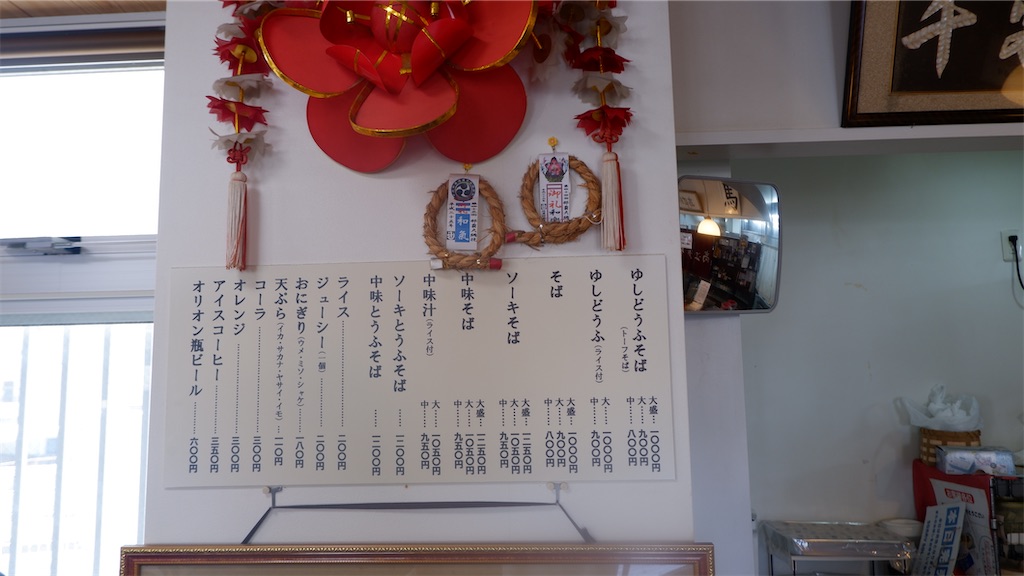 ゆしどうふそば
(トーフそば)
大盛‥一〇〇〇円
大‥‥九〇〇円
中‥‥八〇〇円
ゆしどうふ(ライス付)
大‥‥一〇〇〇円
中‥‥九〇〇円
そば
大盛‥一〇〇〇円
大‥‥九〇〇円
中‥‥八〇〇円
ソーキそば
大盛‥一一五〇円
大‥‥一〇五〇円
中‥‥九五〇円
中味そば
大盛‥一一五〇円
大‥‥一〇五〇円
中‥‥九五〇円
中味汁(ライス付)
大‥‥一〇五〇円
中‥‥九五〇円
ソーキとうふそば‥‥一二〇〇円
中味とうふそば‥‥一二〇〇円
ライス‥‥二〇〇円
ジューシー(一個)‥‥二〇〇円
おにぎり(ウメ・ミソ・シャケ)‥‥一八〇円
天ぷら(イカ・サカナ・ヤサイ・イモ)‥‥一一〇円
コーラ‥‥三〇〇円
オレンジ‥‥三〇〇円
アイスコーヒー‥‥三五〇円
オリオン瓶ビール‥‥六〇〇円
御礼
和泉
馬